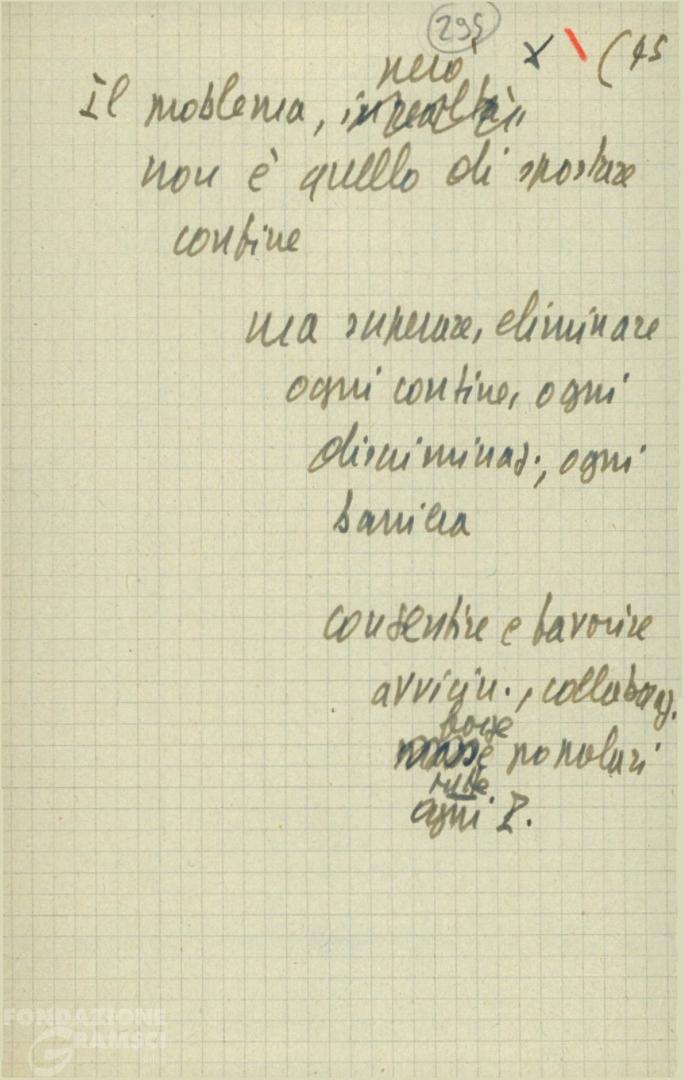 295
però x \ (45
Il problema, in realtà,
non è quello di spostare
confine
ma superare, eliminare
ogni confine, ogni
discriminaz., ogni
barriera
consentire e favorire
avvicin., collaboraz.
forze
masse popolari
tutte
ogni I.
FONDAZIONE
GRAMSCI